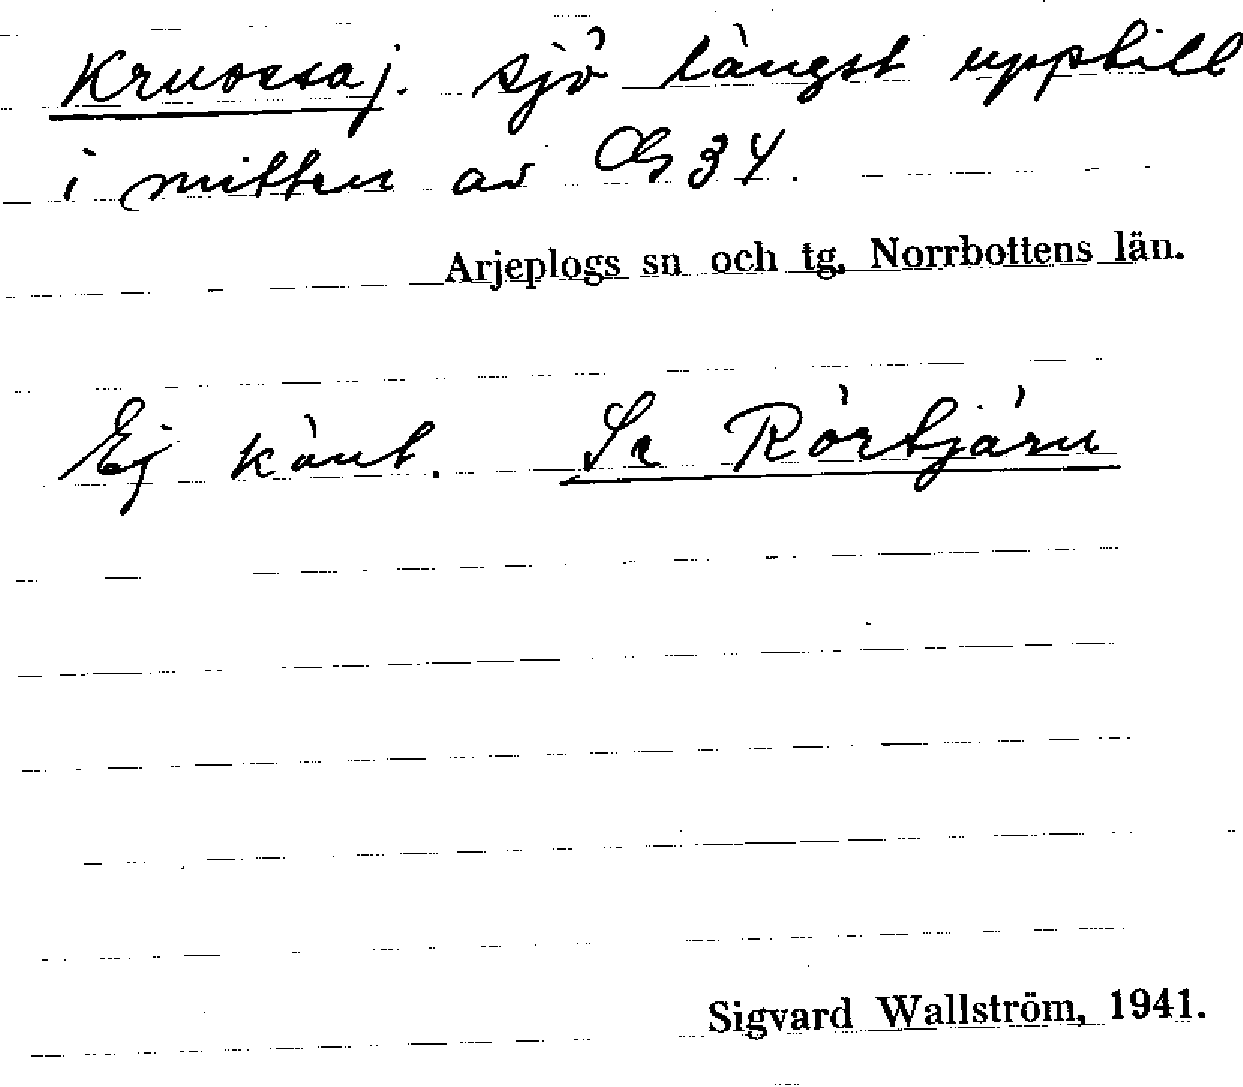 Kruossaj. sjö längst upptill
i mitten av Gb 34.
Arjeplogs sn och tg. Norrbottens län.
Ej känt. Se Rörtjärn
Sigvard Wallström, 1941.